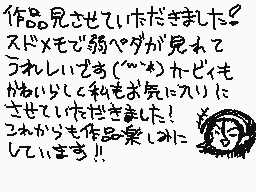 作品見させていただきました!
スドメモで弱ペダが見れて
うれしいです(^~^*)カービィも
かわいらしく私もお気に入りに
させていただきました!
これからも作品楽しみに
しています!!